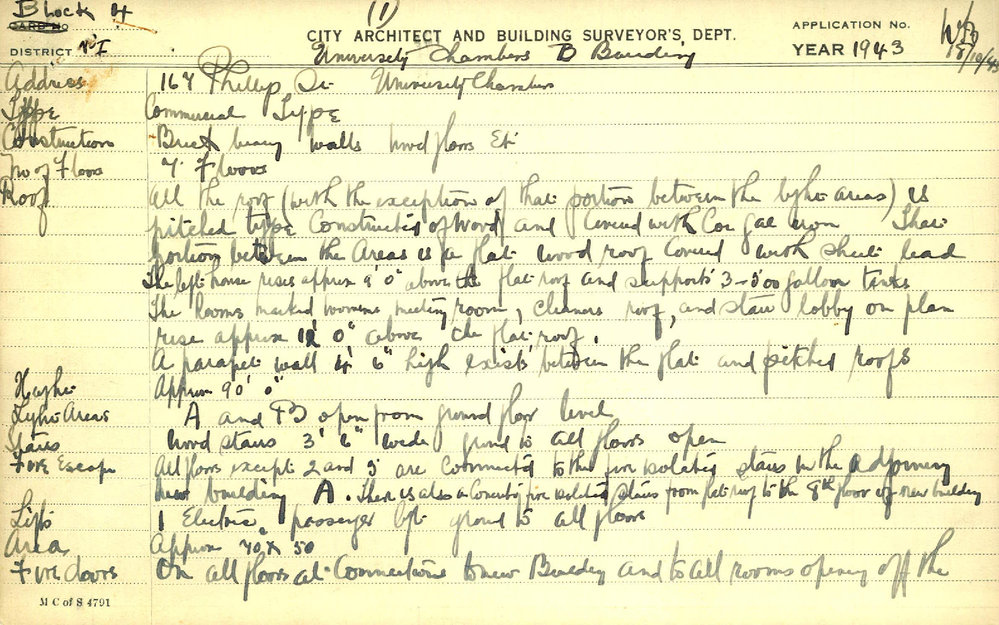 Block 4
(1)
CARD No
CITY ARCHITECT AND BUILDING SURVEYOR'S, DEPT.
APPLICATION No.
DISTRICT No I
University Chambers B Building
YEAR 1943
15/10/43
Address 167 Phillip St University Chambers
Type Commercial Type
Construction Brick bearing walls wood floors Etc
No of Floors 7 Floors
Roof All the roof (with the exception of that portion between the light areas) is
pitched type Constructed of wood and Covered with Cor gal iron That
portion between the Areas is a flat wood roof Covered with sheet lead
The lift house rises approx 9' 0" above the flat roof and supports 3-500 gallon tanks
The Rooms marked womens meeting room, cleaners roof, and stair lobby on plan
rise approx 12' 0" above the flat roof.
A parapet wall 4' 6" high exists between the flat and pitched roofs
Height Approx 90' 0"
Light Areas A and B open from ground floor level
Stairs Wood stairs 3' 6" wide ground to all floors open
Fire Escape All floors except 2 and 3 are Connected to the fire isolated stairs in the adjoining
new building A. There is also a Concrete fire isolated stairs from flat roof to the 8th floor of new building
Lifts 1 Electric passenger lift ground to all floors
Area Approx 70 x 50
Fire doors On all floors at Connections to new Building and to all rooms opening off the
M C of S 4791